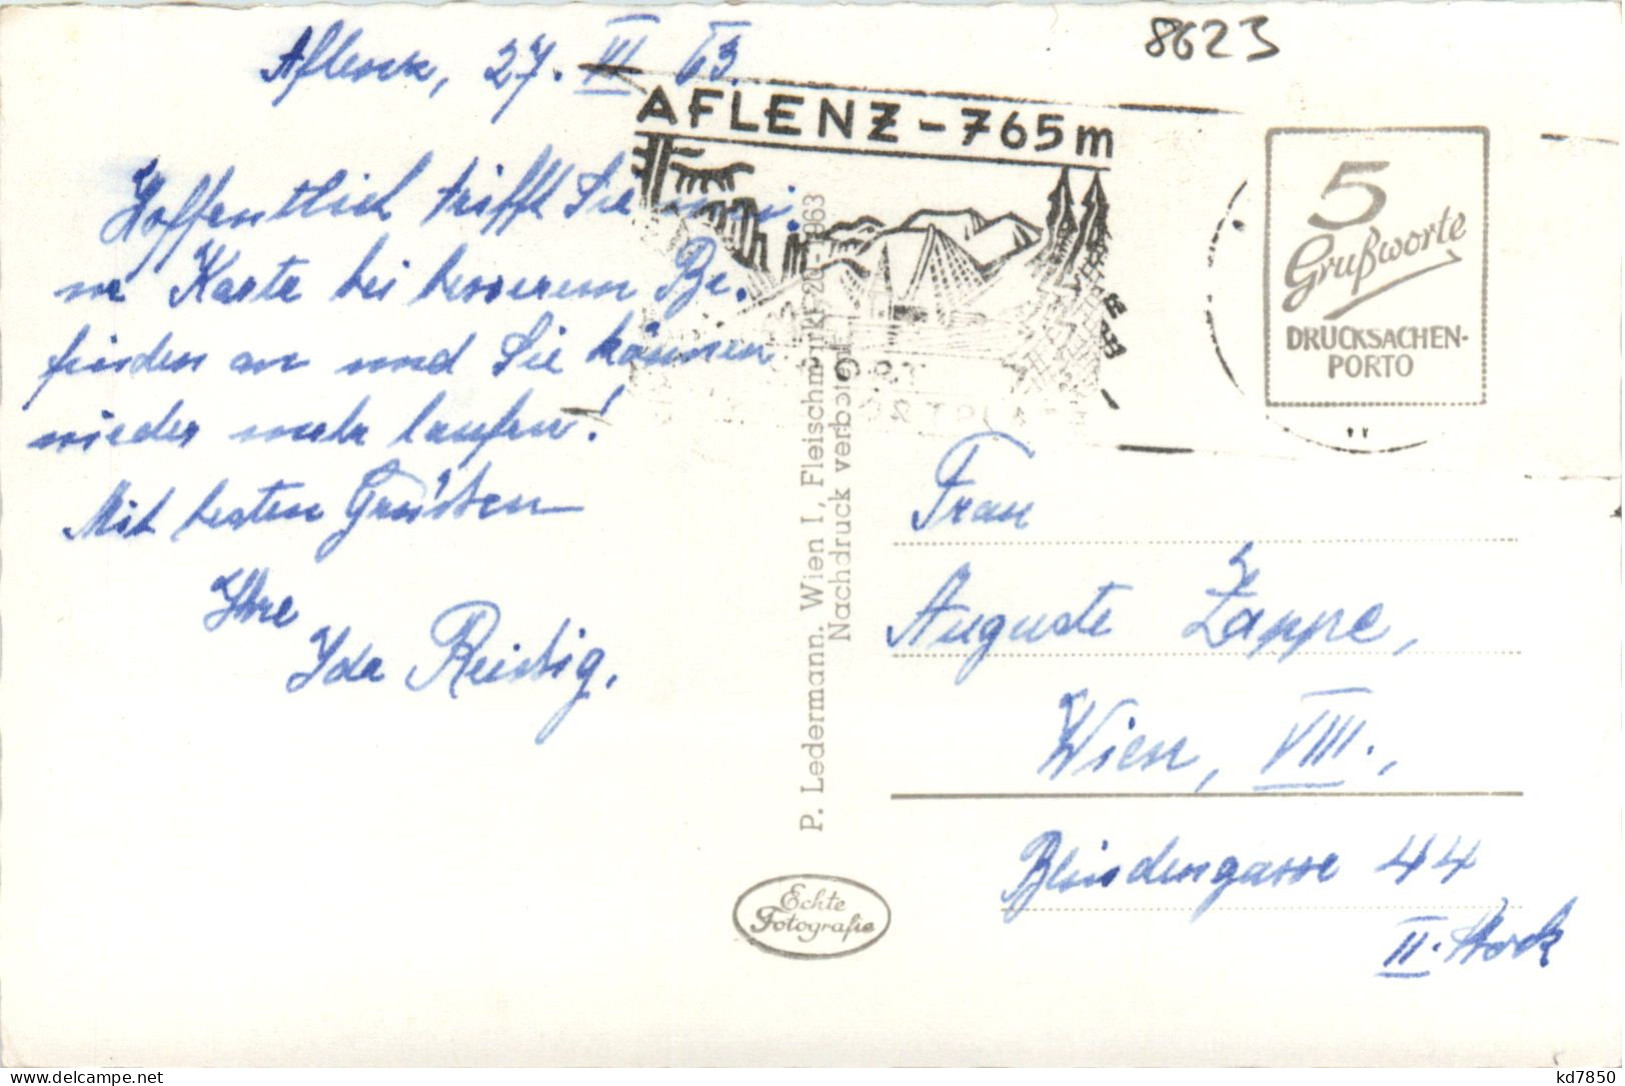 8623
Aflenz, 27. VII 63.
AFLENZ - 765 m
Hoffentlich trifft Sie mei
ne Karte bei besserem Be-
finden an und Sie können
wieder mehr laufen!
Mit besten Grüssen
Ihre
Ida Reissig.
P. Ledermann. Wien I, Fleischmarkt 20-1963
Nachdruck verboten!
Echte
Fotografie
5
Grußworte
DRUCKSACHEN-
PORTO
Frau
Auguste Zappe,
Wien, VIII.,
Blindengasse 44
II. Stock
kd7850